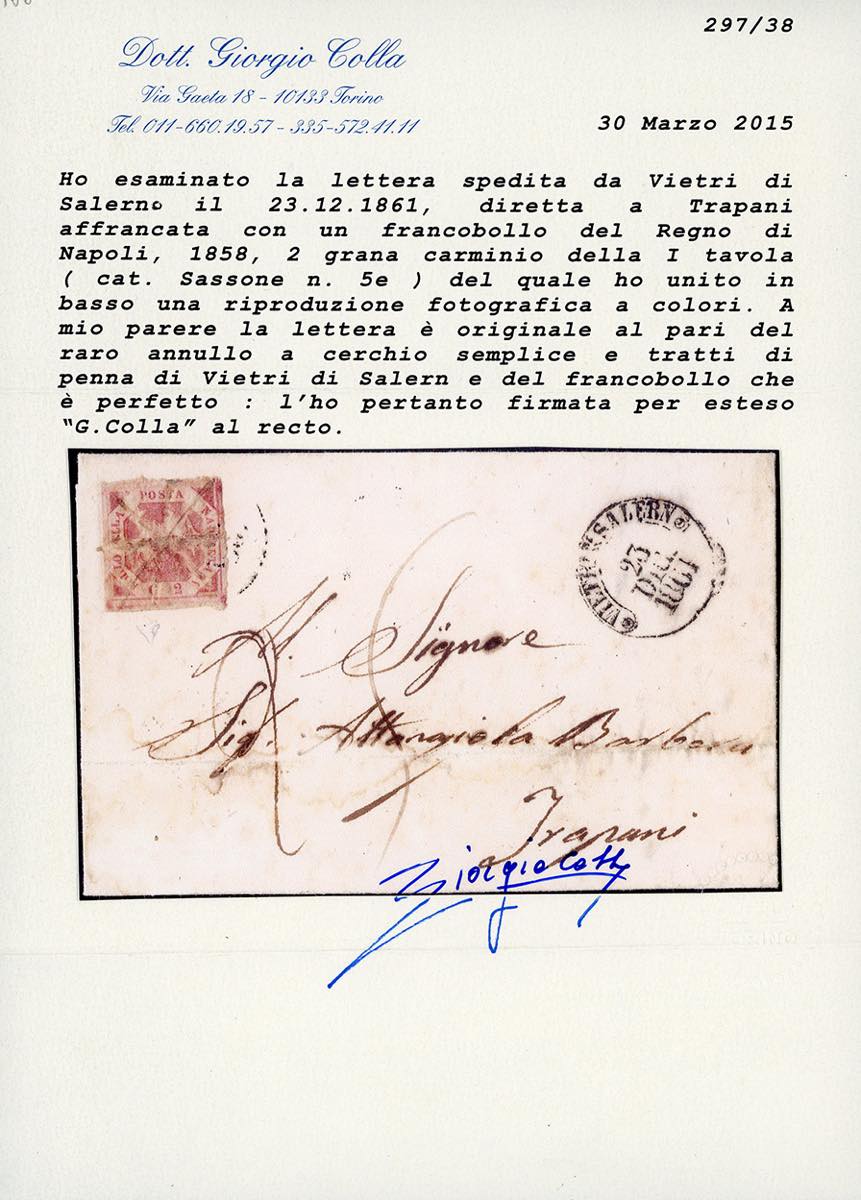 297/38
Dott. Giorgio Colla
Via Gaeta 18 - 10133 Torino
Tel. 011-660.19.57 - 335-572.41.11
30 Marzo 2015
Ho esaminato la lettera spedita da Vietri di
Salerno il 23.12.1861, diretta a Trapani
affrancata con un francobollo del Regno di
Napoli, 1858, 2 grana carminio della I tavola
( cat. Sassone n. 5e ) del quale ho unito in
basso una riproduzione fotografica a colori. A
mio parere la lettera è originale al pari del
raro annullo a cerchio semplice e tratti di
penna di Vietri di Salern e del francobollo che
è perfetto : l'ho pertanto firmata per esteso
"G.Colla" al recto.
POSTA
G 2
SALERNO
23
DIC
1861
Al Signore
Sig.
Trapani